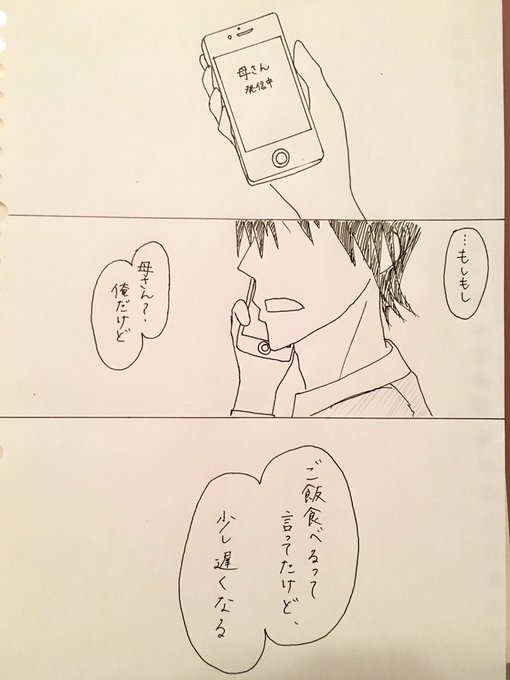 母さん
発信中
…もしもし
母さん?
俺だけど
ご飯食べるって
言ってたけど、
少し遅くなる